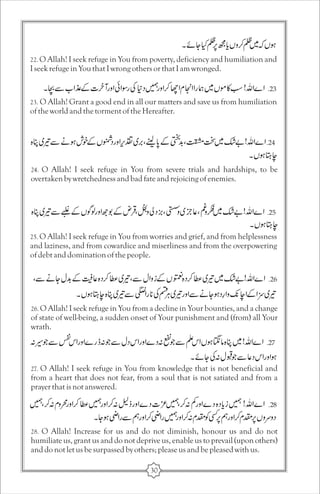 ہو کہ میں ظلم کروں یا مجھ پر ظلم کیا جائے۔
22. O Allah! I seek refuge in You from poverty, deficiency and humiliation and
I seek refuge in You that I wrong others or that I am wronged.
23. اے اللہ! سب کاموں میں ہمارا انجام اچھا کر اور ہمیں دنیا کی رسوائی اور آخرت کے عذاب سے بچا۔
23. O Allah! Grant a good end in all our matters and save us from humiliation
of the world and the torment of the Hereafter.
24. اے اللہ! بے شک میں سخت مشقت، بدبختی کے پا لینے، بری تقدیر اور دشمنوں کے خوش ہونے سے تیری پناہ
چاہتا ہوں۔
24. O Allah! I seek refuge in You from severe trials and hardships, to be
overtaken by wretchedness and bad fate and rejoicing of enemies.
25. اے اللہ! بے شک میں فکر و غم، عاجزی و سستی، بزدلی و بخل، قرض کے بوجھ اور لوگوں کے غلبے سے تیری پناہ
چاہتا ہوں۔
25. O Allah! I seek refuge in You from worries and grief, and from helplessness
and laziness, and from cowardice and miserliness and from the overpowering
of debt and domination of the people.
26. اے اللہ! بے شک میں تیری عطا کردہ نعمتوں کے زوال سے، تیری عطا کردہ عافیت کے بدل جانے سے،
تیری سزا کے اچانک وارد ہو جانے سے اور تیری ہر قسم کی ناراضگی سے تیری پناہ چاہتا ہوں۔
26. O Allah! I seek refuge in You from a decline in Your bounties, and a change
of state of well-being, a sudden onset of Your punishment and (from) all Your
wrath.
27. اے اللہ! میں پناہ مانگتا ہوں اس علم سے جو نفع نہ دے اور اس دل سے جو نہ ڈرے اور اس نفس سے جو سیر نہ
ہو اور اس دعا سے جو قبول نہ کی جائے۔
27. O Allah! I seek refuge in You from knowledge that is not beneficial and
from a heart that does not fear, from a soul that is not satiated and from a
prayer that is not answered.
28. اے اللہ! ہمیں زیادہ دے اور کم نہ کر، ہمیں عزت دے اور ذلیل نہ کر اور ہمیں عطا کر اور محروم نہ کر، ہمیں
دوسروں پر مقدم کر اور ہم پر کسی کو مقدم نہ کر اور ہمیں راضی کر اور ہم سے راضی ہو جا۔
28. O Allah! Increase for us and do not diminish, honour us and do not
humiliate us, grant us and do not deprive us, enable us to prevail (upon others)
and do not let us be surpassed by others; please us and be pleased with us.
30